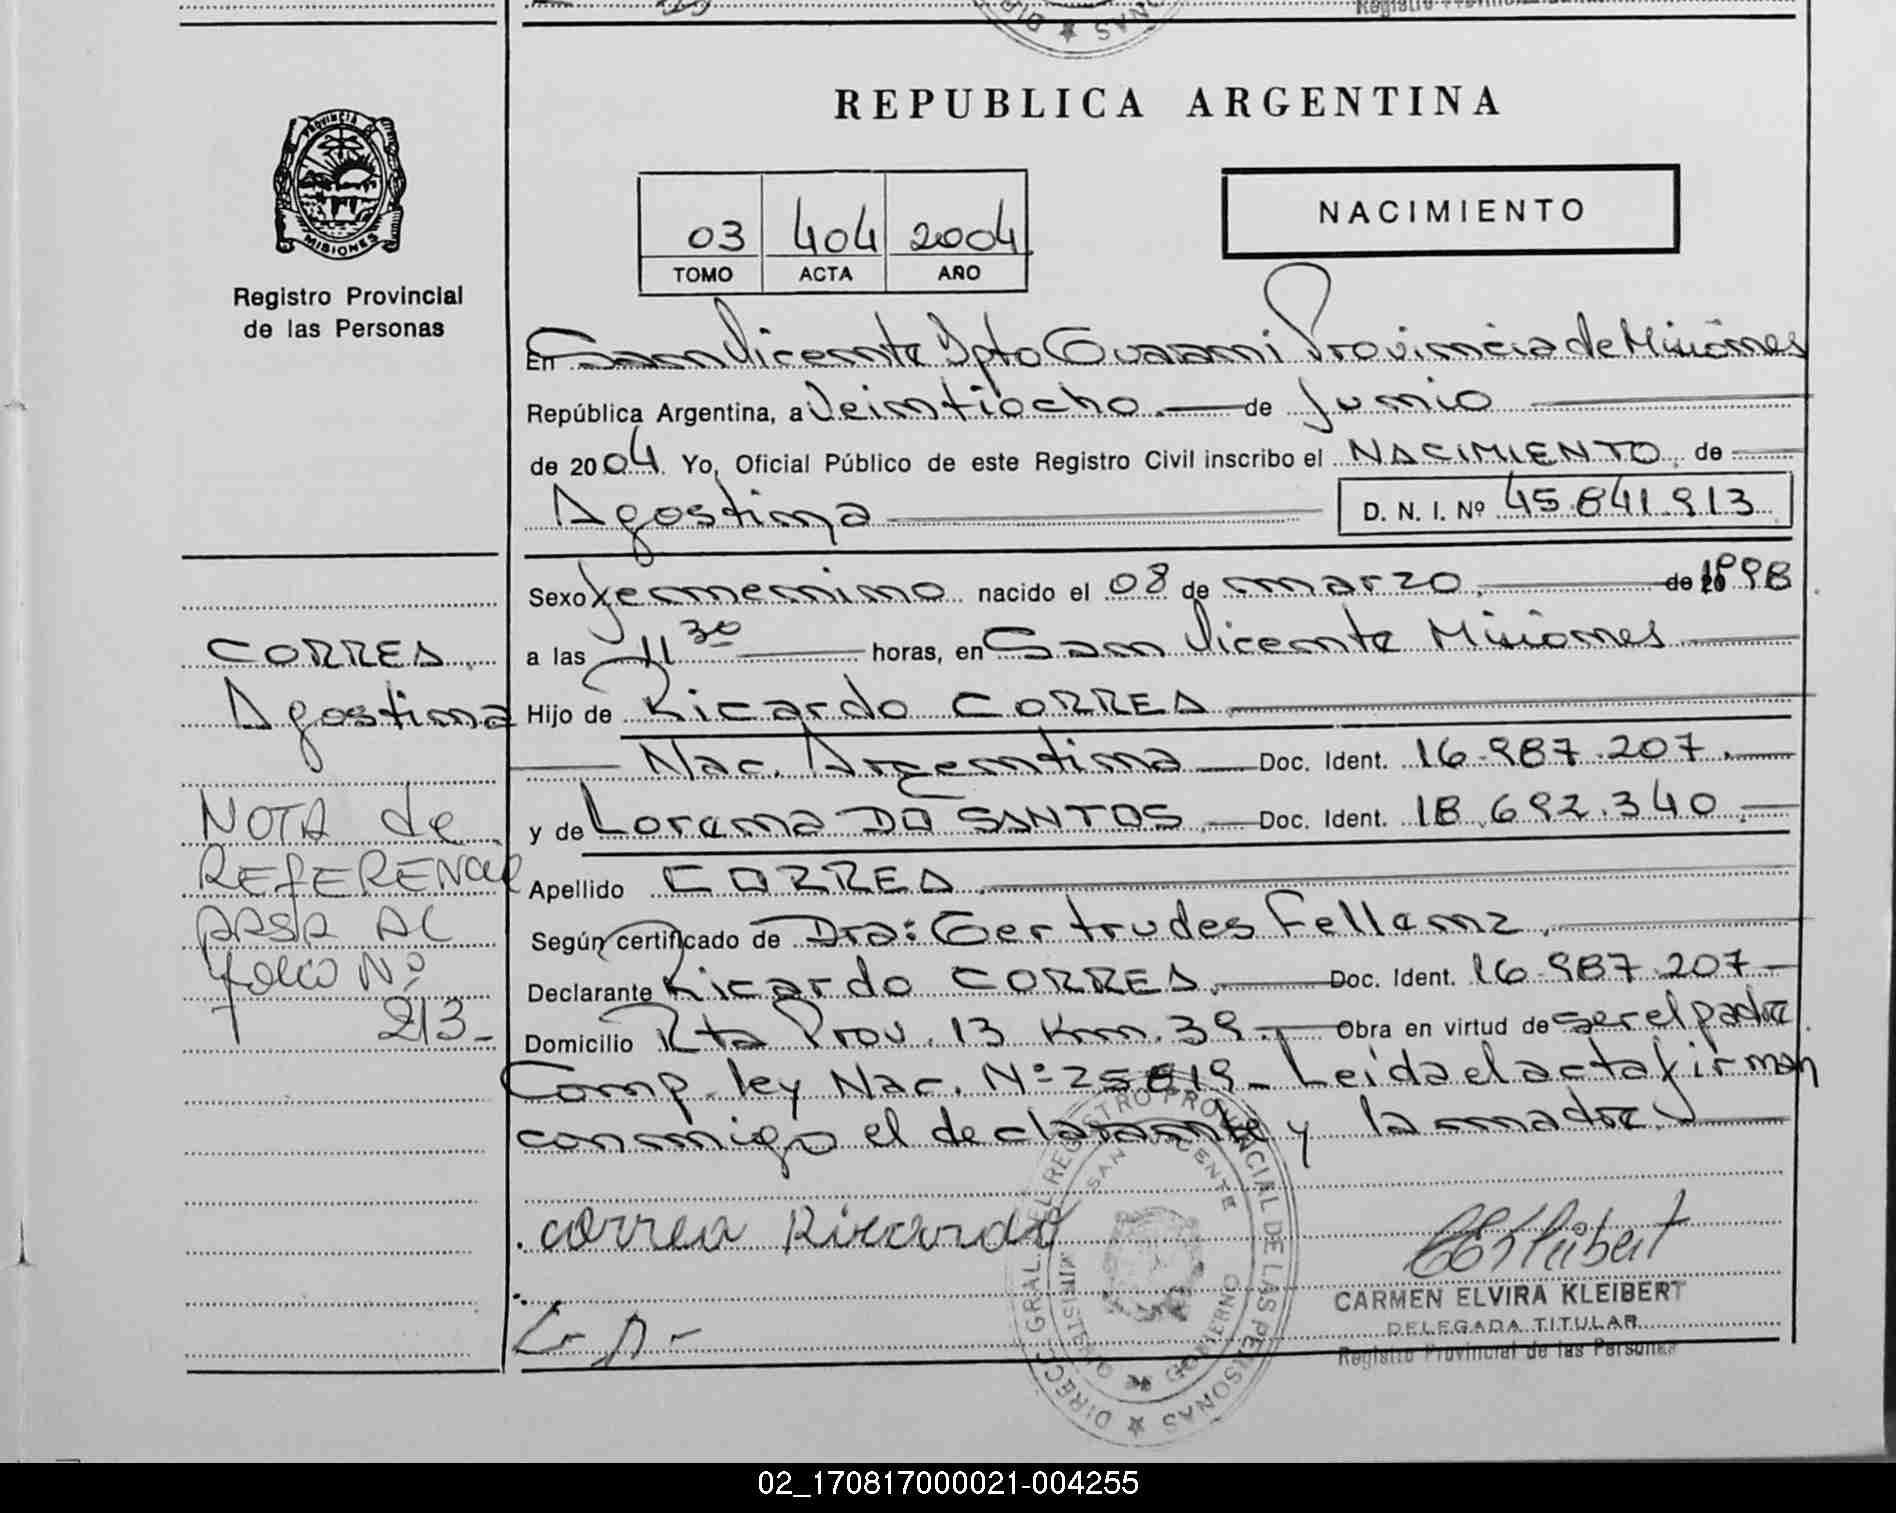 REPUBLICA ARGENTINA
PROVINCIA DE
MISIONES
Registro Provincial
de las Personas
03 404 2004
TOMO ACTA AÑO
NACIMIENTO
En San Vicente Dpto Guarani Provincia de Misiones
República Argentina, a Veintiocho de Junio
de 2004. Yo, Oficial Público de este Registro Civil inscribo el NACIMIENTO de
Agostina D. N. I. Nº 45.841.913
Sexo femenino nacido el 08 de marzo de 20 1998
a las 11 30 horas, en San Vicente Misiones
Hijo de Ricardo CORREA
Nac. Argentina Doc. Ident. 16.987.207.
y de Lorena DO SANTOS Doc. Ident. 18.692.340
Apellido CORREA
Según certificado de Dra: Gertrudes Fellenz
Declarante Ricardo CORREA Doc. Ident. 16.987.207
Domicilio Rta Prov. 13 Km. 39. Obra en virtud de ser el padre
Comp. ley Nac. Nº 25819 - Leida el acta firman
conmigo el declarante y la madre
CORREA
Agostina
NOTA de
REFERENCIA
PASA AL
folio Nº
213-
Correa Ricardo
L- D-
DIREC. GRAL. DEL REGISTRO PROVINCIAL DE LAS PERSONAS
SAN VICENTE
MINISTERIO DE GOBIERNO
CARMEN ELVIRA KLEIBERT
DELEGADA TITULAR
Registro Provincial de las Personas
02_170817000021-004255